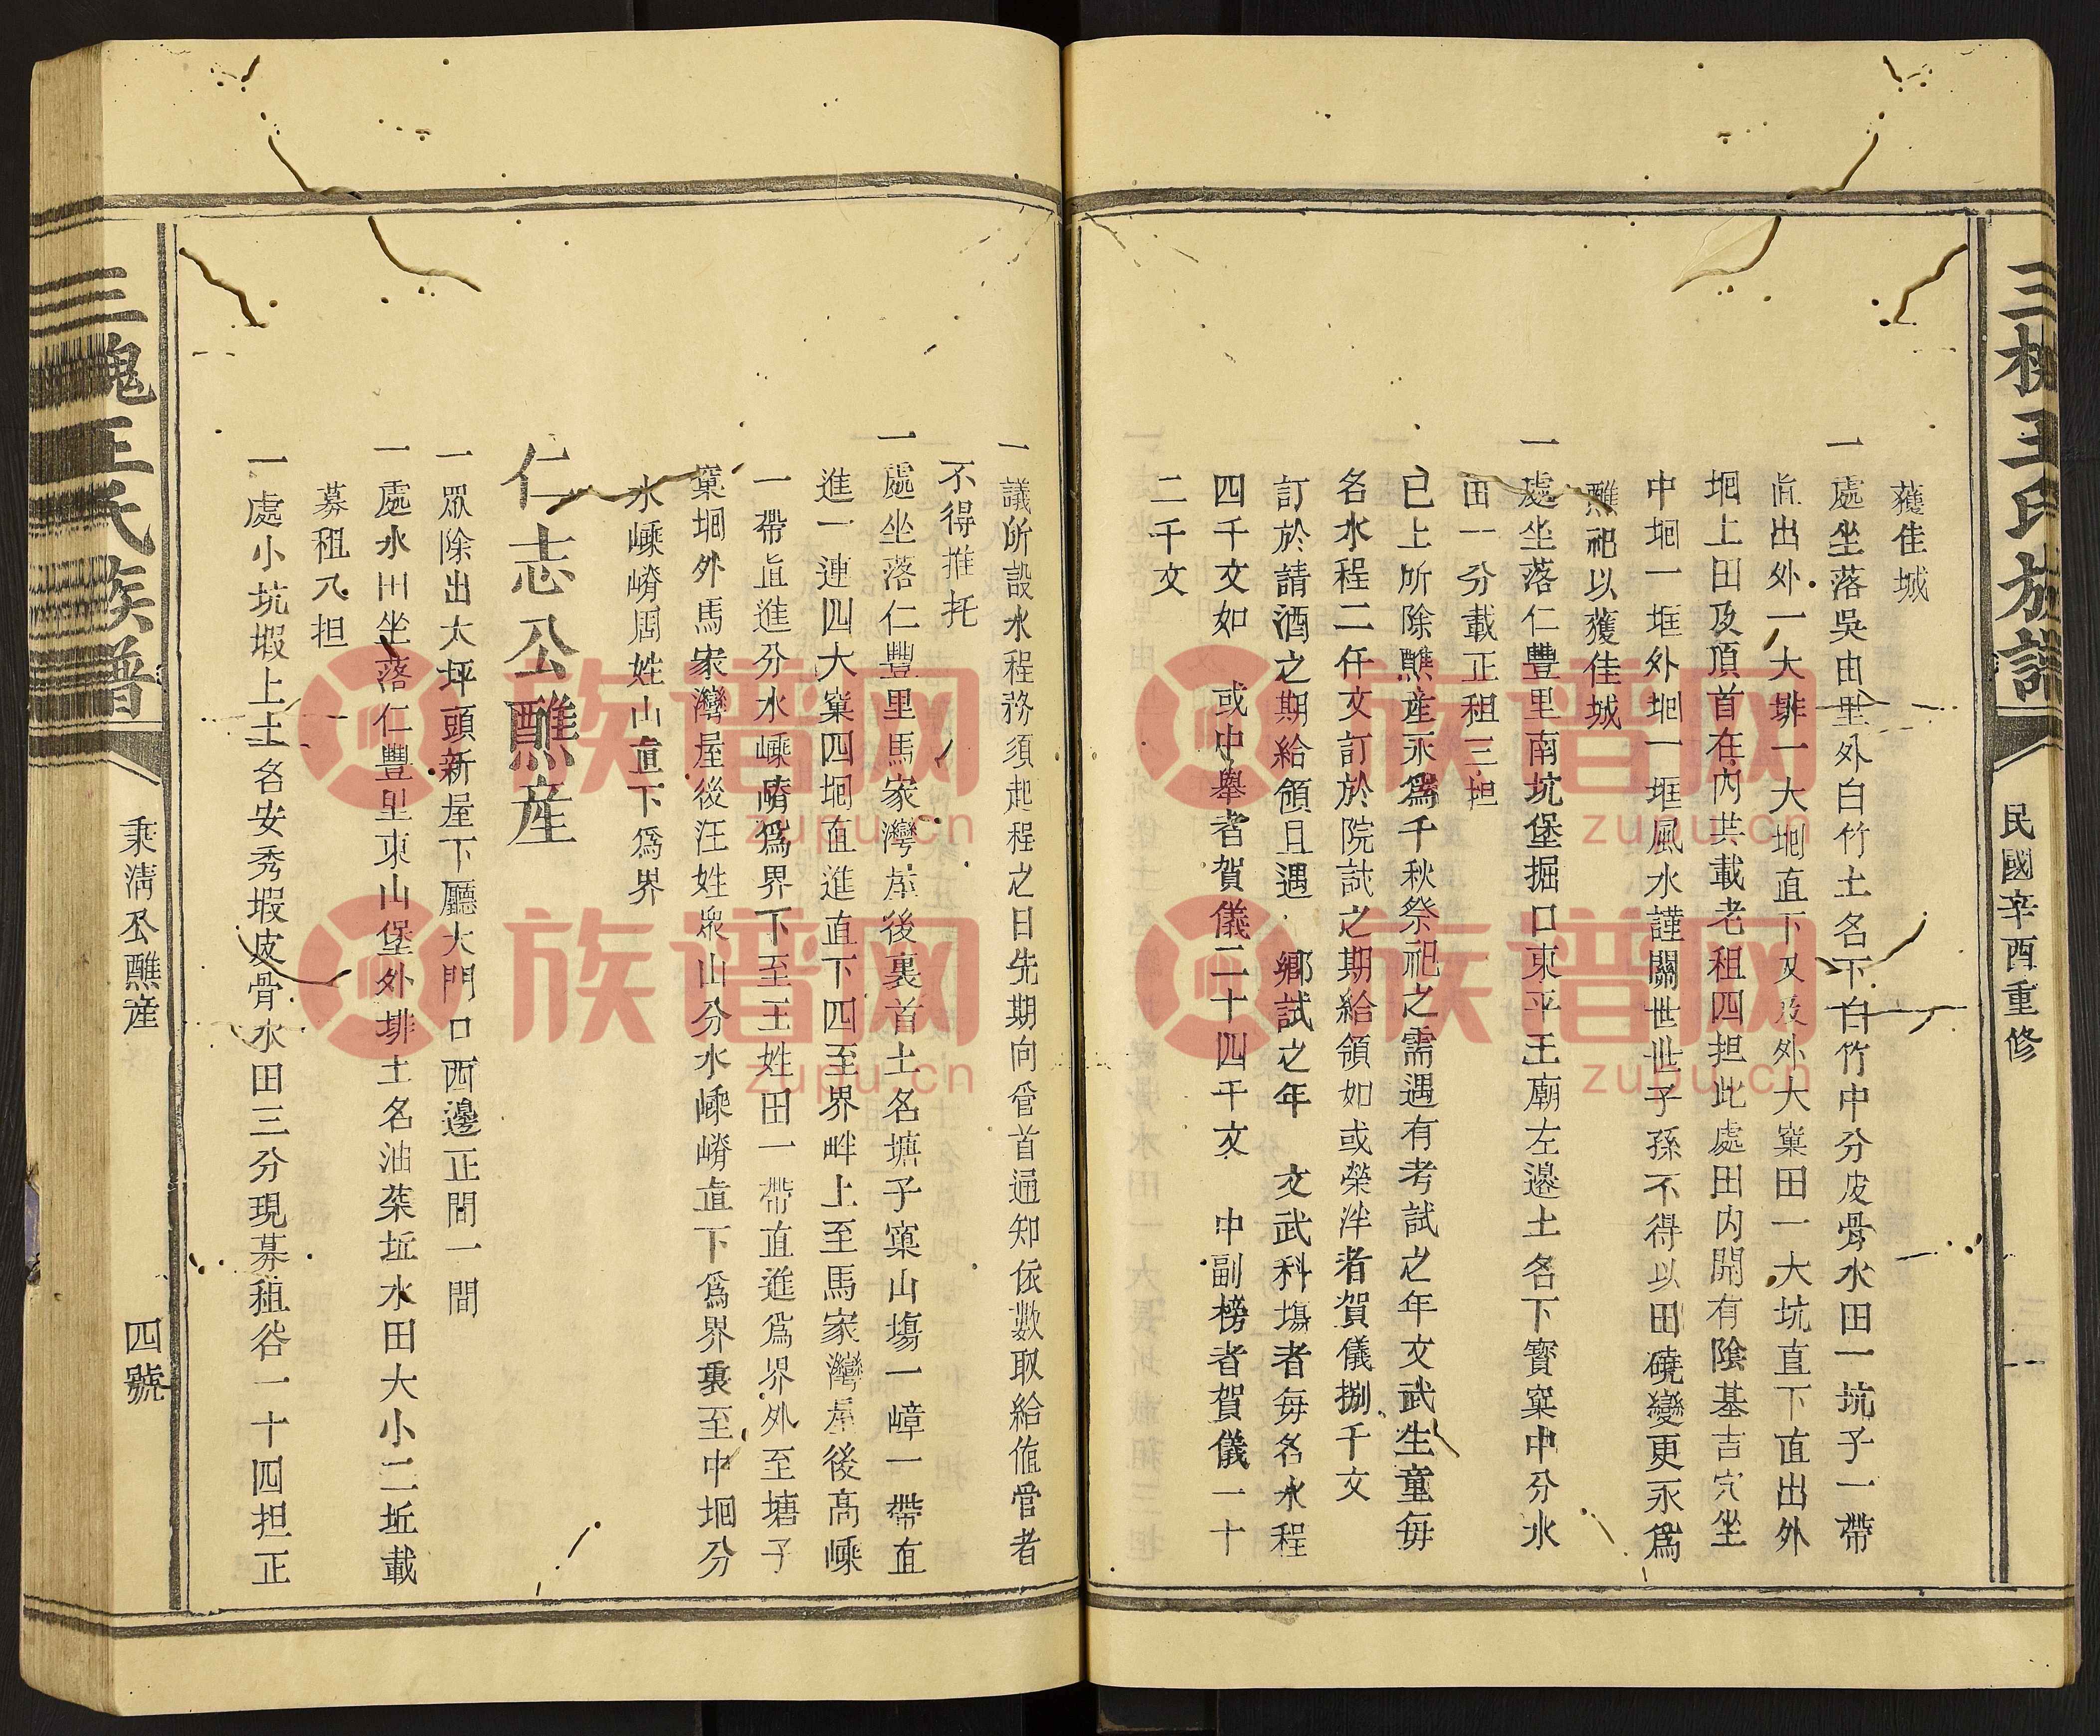 三槐王氏族譜
民國辛酉重修
獲佳城
一處坐落吳由里外白竹土名下白竹中分皮骨水田一坑子一帶
直出外一大排一大垇直下又及外大窠田一大坑直下直出外
垇上田及頂首在內共載老租四担此處田內開有陰基吉穴坐
中垇一框外垇一框風水謹關世世子孫不得以田磽變更永爲
醮祀以獲佳城
一處坐落仁豐里南坑堡掘口東平王廟左邊土名下寶窠中分水
田一分載正租三担
已上所除醮産永爲千秋祭祀之需遇有考試之年文武生童每
名水程二仟文訂於院試之期給領如或榮泮者賀儀捌千文
訂於請酒之期給領且遇 鄉試之年 文武科塲者每名水程
四千文如 或中舉者賀儀二十四千文 中副榜者賀儀一十
二千文
一議所設水程務須起程之日先期向管首通知依數取給值管者
不得推托
一處坐落仁豐里馬家灣屋後裏首土名塘子窠山塲一嶂一帶直
進一連四大窠四垇直進直下四至界畔上至馬家灣屋後高嵊
一帶直進分水嵊嵴爲界下至王姓田一帶直進爲界外至塘子
窠垇外馬家灣屋後汪姓衆山分水嵊嵴直下爲界裏至中垇分
水嵊嵴周姓山直下爲界
仁志公醮産
一眾除出大坪頭新屋下廳大門口西邊正間一間
一處水田坐落仁豐里東山堡外排土名油菜坵水田大小二坵載
募租八担
一處小坑塅上土名安秀塅皮骨水田三分現募租谷一十四担正
三槐王氏族譜
秉淸公醮産
四號
族谱网
zupu.cn
族谱网
zupu.cn
族谱网
zupu.cn
族谱网
zupu.cn